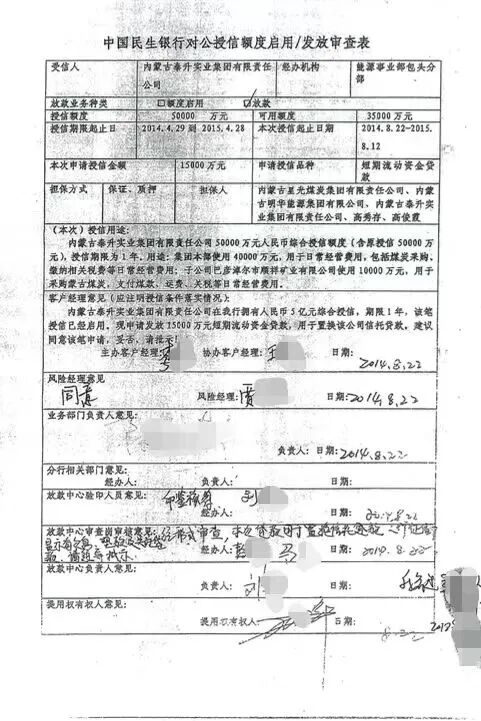 中国民生银行对公授信额度启用/发放审查表
受信人 内蒙古泰升实业集团有限责任公司 经办机构 能源事业部包头分部
放款业务种类 □额度启用 □放款
授信额度 50000 万元 可用额度 35000万元
授信期限起止日 2014.4.29 到 2015.4.28 本次启用起止日期 2014.8.22-2015.8.12
本次申请授信金额 15000 万元 申请授信品种 短期流动资金贷款
担保方式 保证、质押 担保人 内蒙古星光煤炭集团有限责任公司、内蒙古明华能源集团有限公司、内蒙古泰升实业集团有限公司、高秀存、高俊霞
(本次)授信用途:
内蒙古泰升实业集团有限责任公司 50000 万元人民币综合授信额度(含原授信 50000 万
元),授信期限为 1 年。用途:集团本部使用 40000 万元,用于日常经营费用,包括煤炭采购、
缴纳相关税费等日常经营费用;子公司巴彦淖尔市顺祥矿业有限公司使用 10000 万元,用于
采购蒙古煤炭,支付煤款、运费、关税等日常经营费用。
客户经理意见(应注明授信条件落实情况):
内蒙古泰升实业集团有限责任公司在我行拥有人民币 5 亿元综合授信,期限 1 年,该笔
授信已经启用。现申请发放 15000 万元短期流动资金贷款,用于置换该公司信托贷款。建议
同意该笔申请,妥否,请批示!
主办客户经理: 协办客户经理: 王 日期: 2014.8.22
风险经理意见
同意 风险经理: 贾 日期: 2014.8.22
业务部门负责人意见:
负责人: 日期: 2014.8.22
分行相关部门意见:
经办人: 负责人: 日期:
放款中心验印人员意见:
经办人: 日期:
放款中心审查岗审核意见:
经办人: 日期: 2014.8.22
放款中心负责人意见:
负责人: 日期:
提用权有权人意见:
提用权有权人: 日期: 8.22